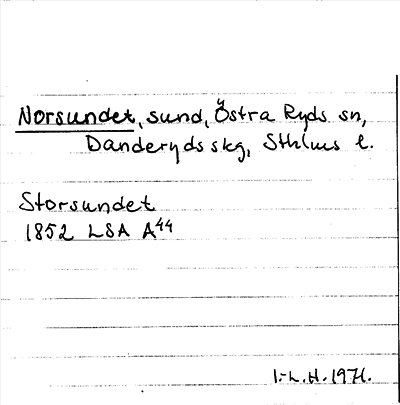 Norsundet, sund, Östra Ryds sn,
Danderyds skg, Sthlms l.
Storsundet
1852 LSA A44
I.-L. H. 1971.